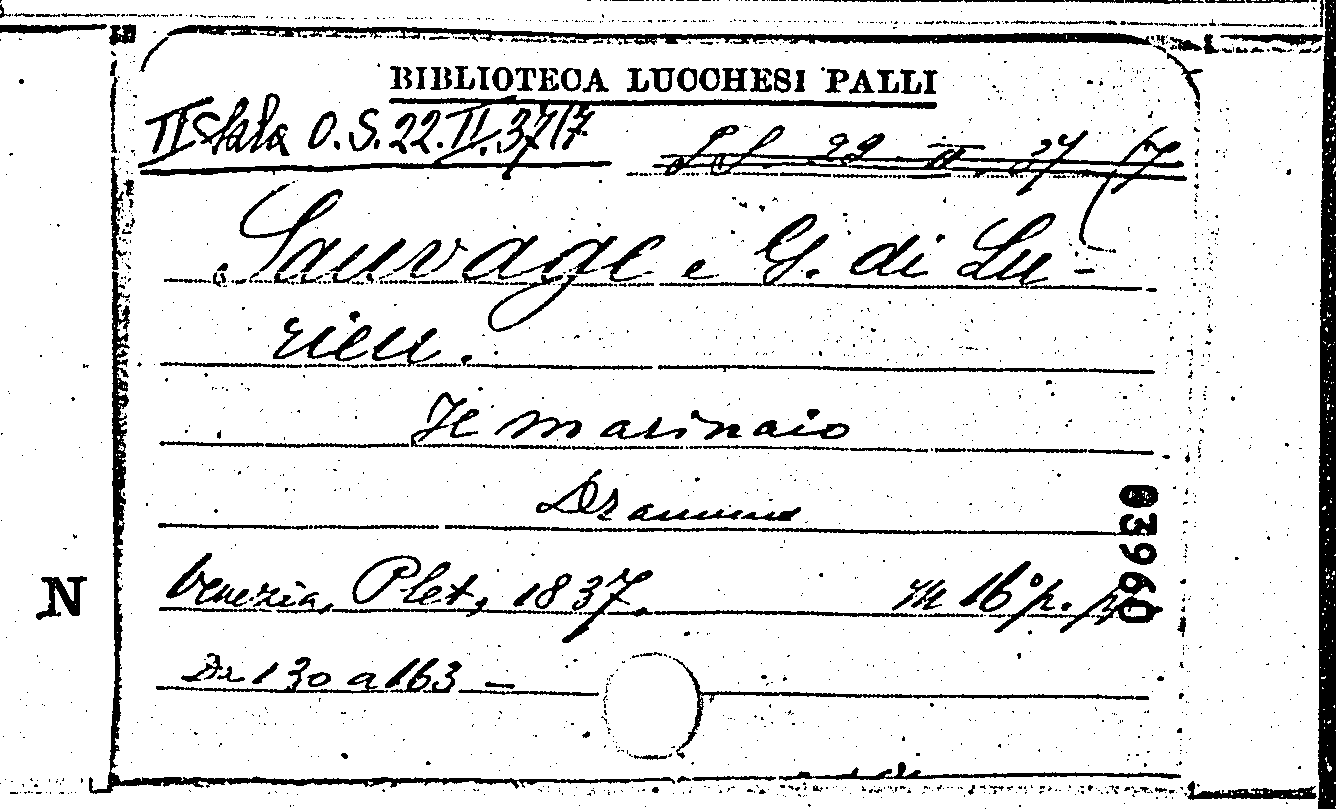 BIBLIOTECA LUCCHESI PALLI
II Sala O.S.22.II.37/7
22 II 37
Sauvage e G. di Lu-
rieu.
Il marinaio
Dramma
Venezia, Plet, 1837. in 16° p. p.
Da 130 a 163 —
N
09930